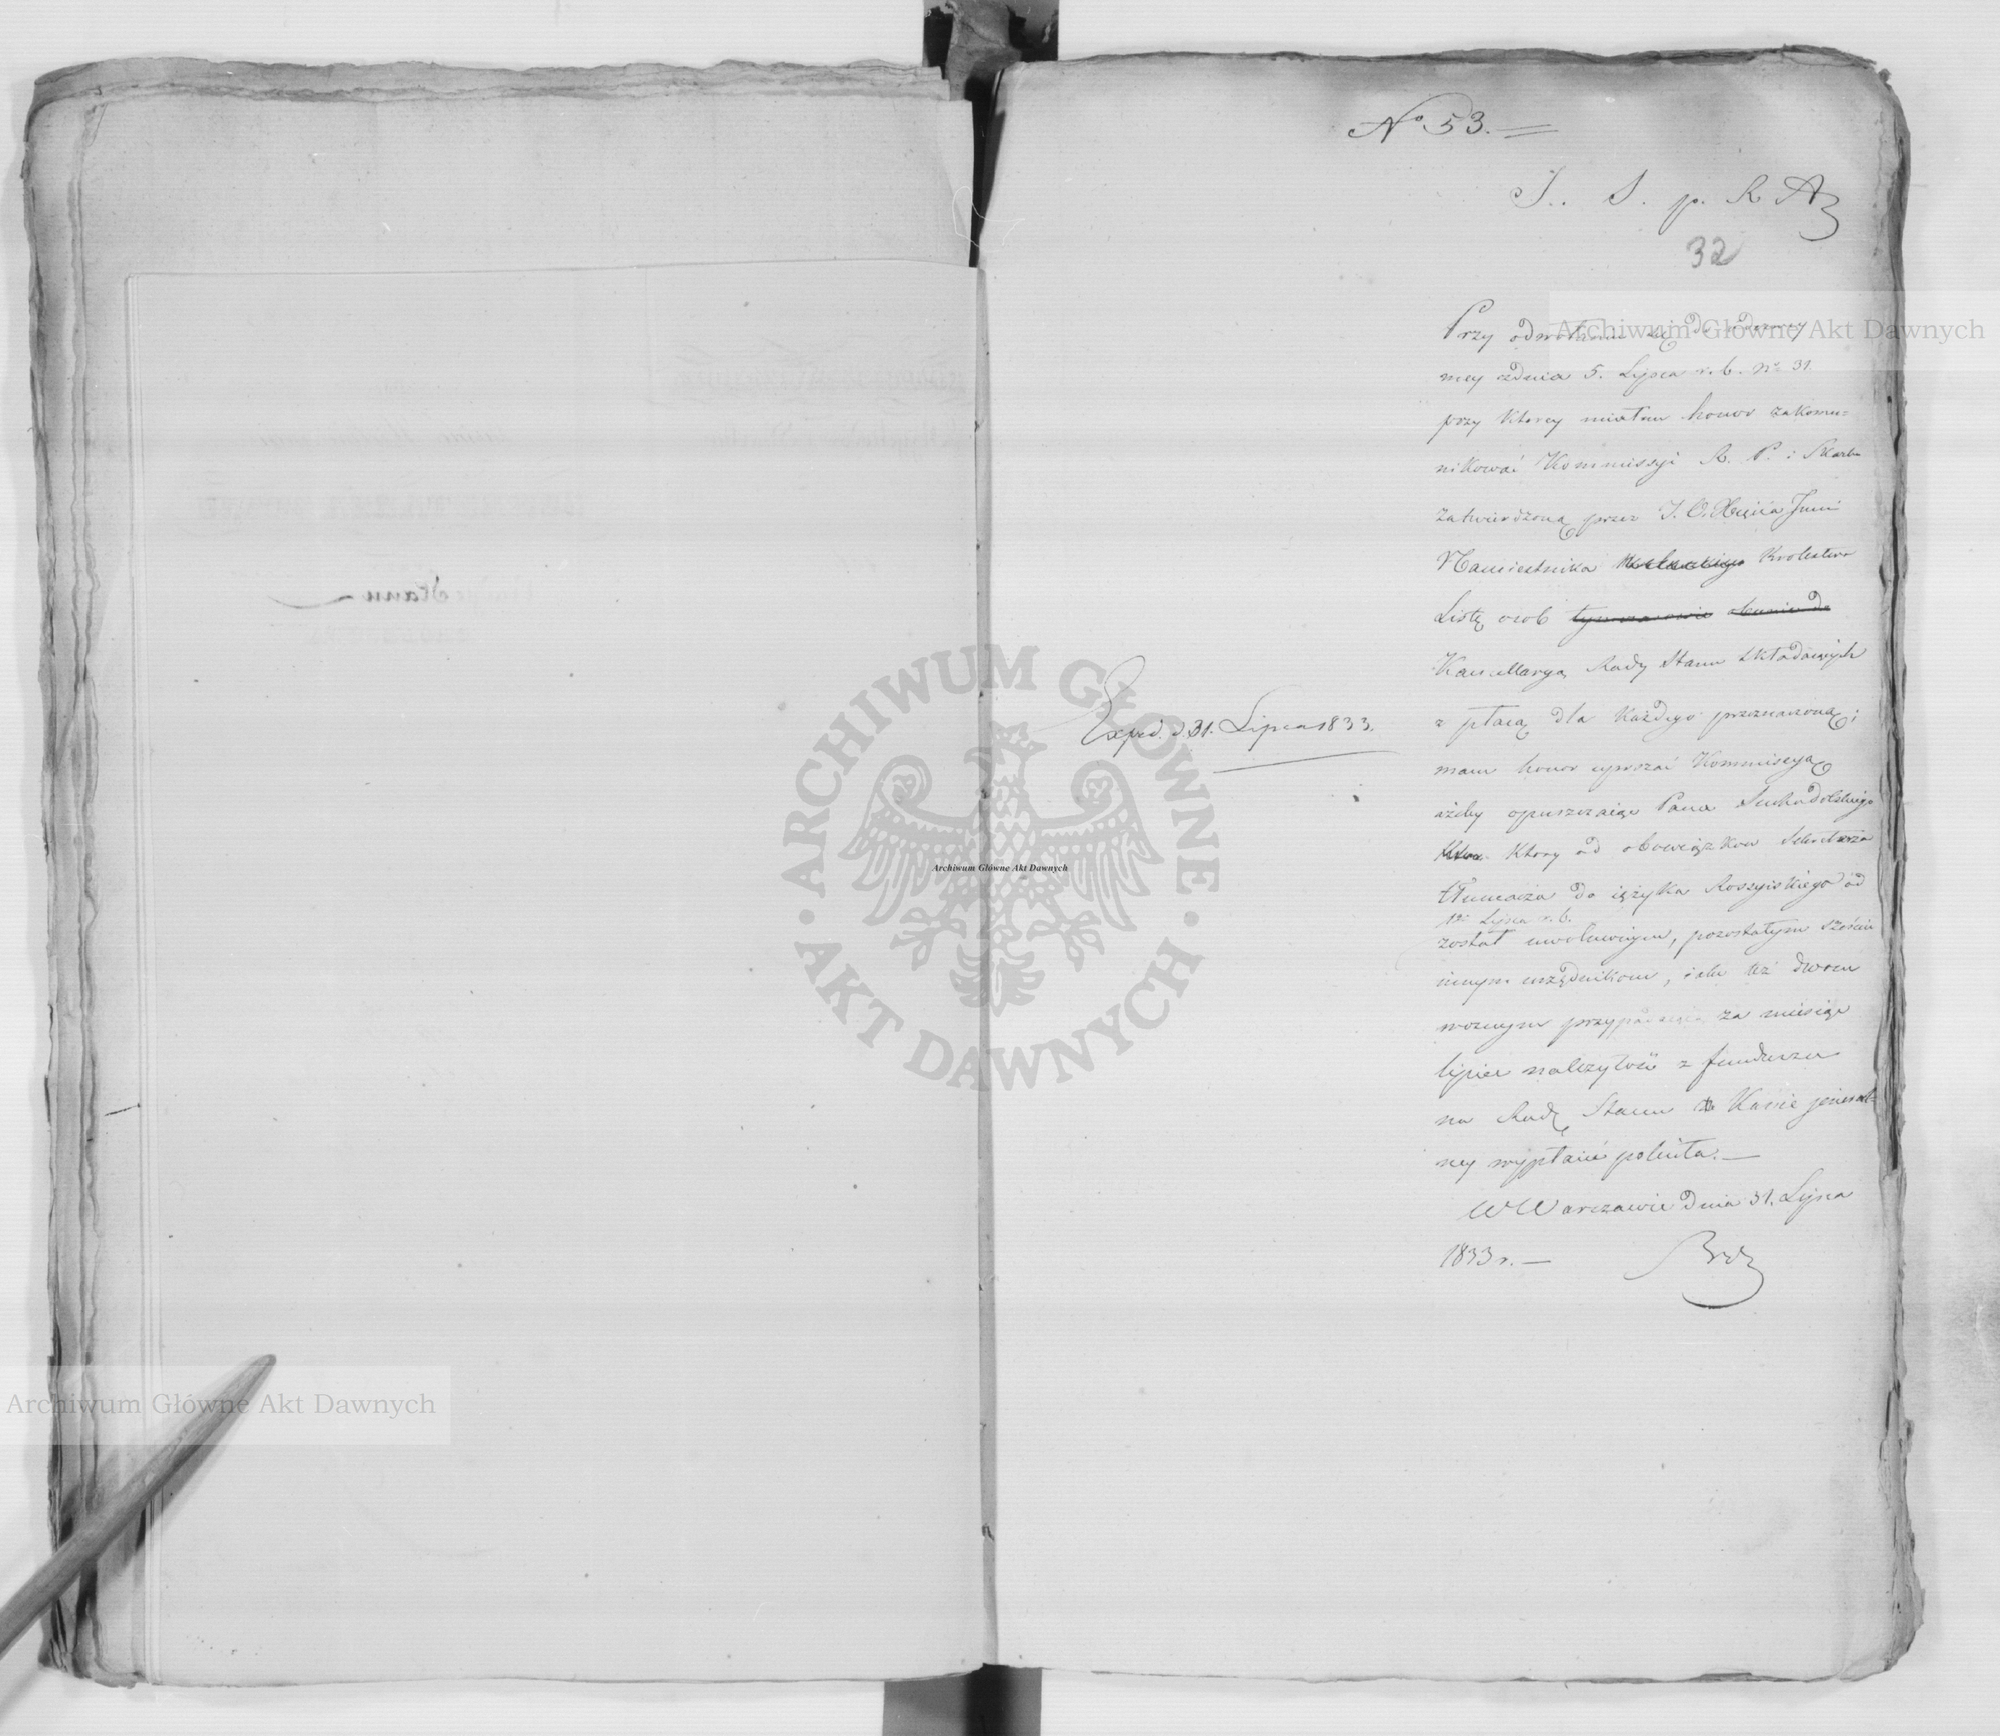 No 53.
J. S. p. R A
32
Przy odwołaniu się do odezwy
mey zdnia 5. Lipca r. b. No 31
przy ktorey miałem honor zakomu=
nikować Kommissyi R. P. i Skarbu
zatwierdzoną przez J. O. Xięcia Jmci
Namiestnika Krolestwa
Listę osob tymczasowie obecnie do
Kancellaryą Rady Stanu składaiących
z płacą dla każdego przeznaczoną;
mam honor upraszać Kommissyą
ażeby opuszczaiąc Pana Suchodolskiego
który od obowiązkow Sekretarza
tłumacza do ięzyka Rossyiskiego od
1go Lipca r. b.
został uwolnionym, pozostałym sześciu
innym urzędnikom, iako też dwom
woznym przypadaiącą za miesiąc
lipiec należytość z funduszu
na Radę Stanu Kassie jeneral=
ney wypłacić poleciła.—
W Warszawie dnia 31. Lipca
1833 r.—
Exped. d. 31. Lipca 1833.
Stanu
Archiwum Główne Akt Dawnych
Archiwum Główne Akt Dawnych
Archiwum Główne Akt Dawnych
ARCHIWUM GŁÓWNE
AKT DAWNYCH